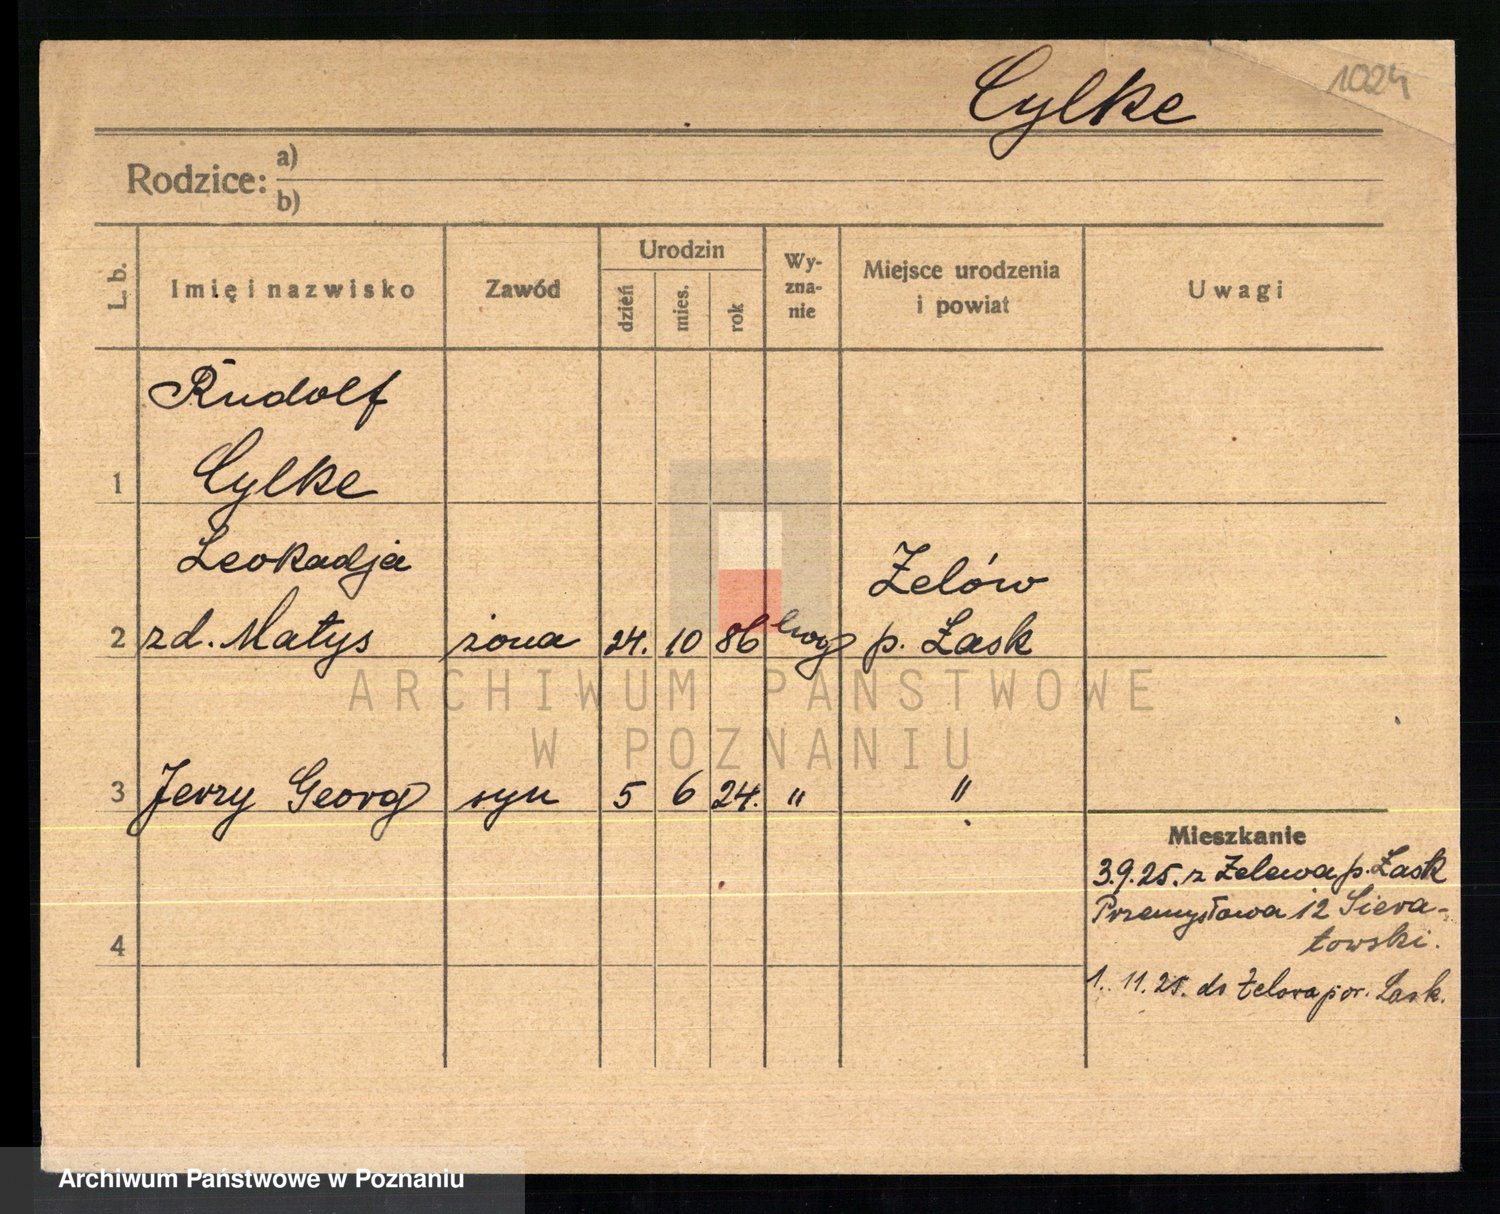 Cylke
1024
Rodzice: a)
b)
L. b.
Imię i nazwisko
Zawód
Urodzin
dzień
mies.
rok
Wy-
zna-
nie
Miejsce urodzenia
i powiat
Uwagi
Rudolf
1 Cylke
Leokadja Zelów
2 zd. Matys żona 24. 10 86 ewg p. Łask
ARCHIWUM PAŃSTWOWE
W POZNANIU
3 Jerzy Georg syn 5 6 24. " "
Mieszkanie
3.9.25. z Zelowa p. Łask
Przemysłowa 12 Siera-
towski.
4
1. 11. 25. do Zelowa pow. Łask.
Archiwum Państwowe w Poznaniu